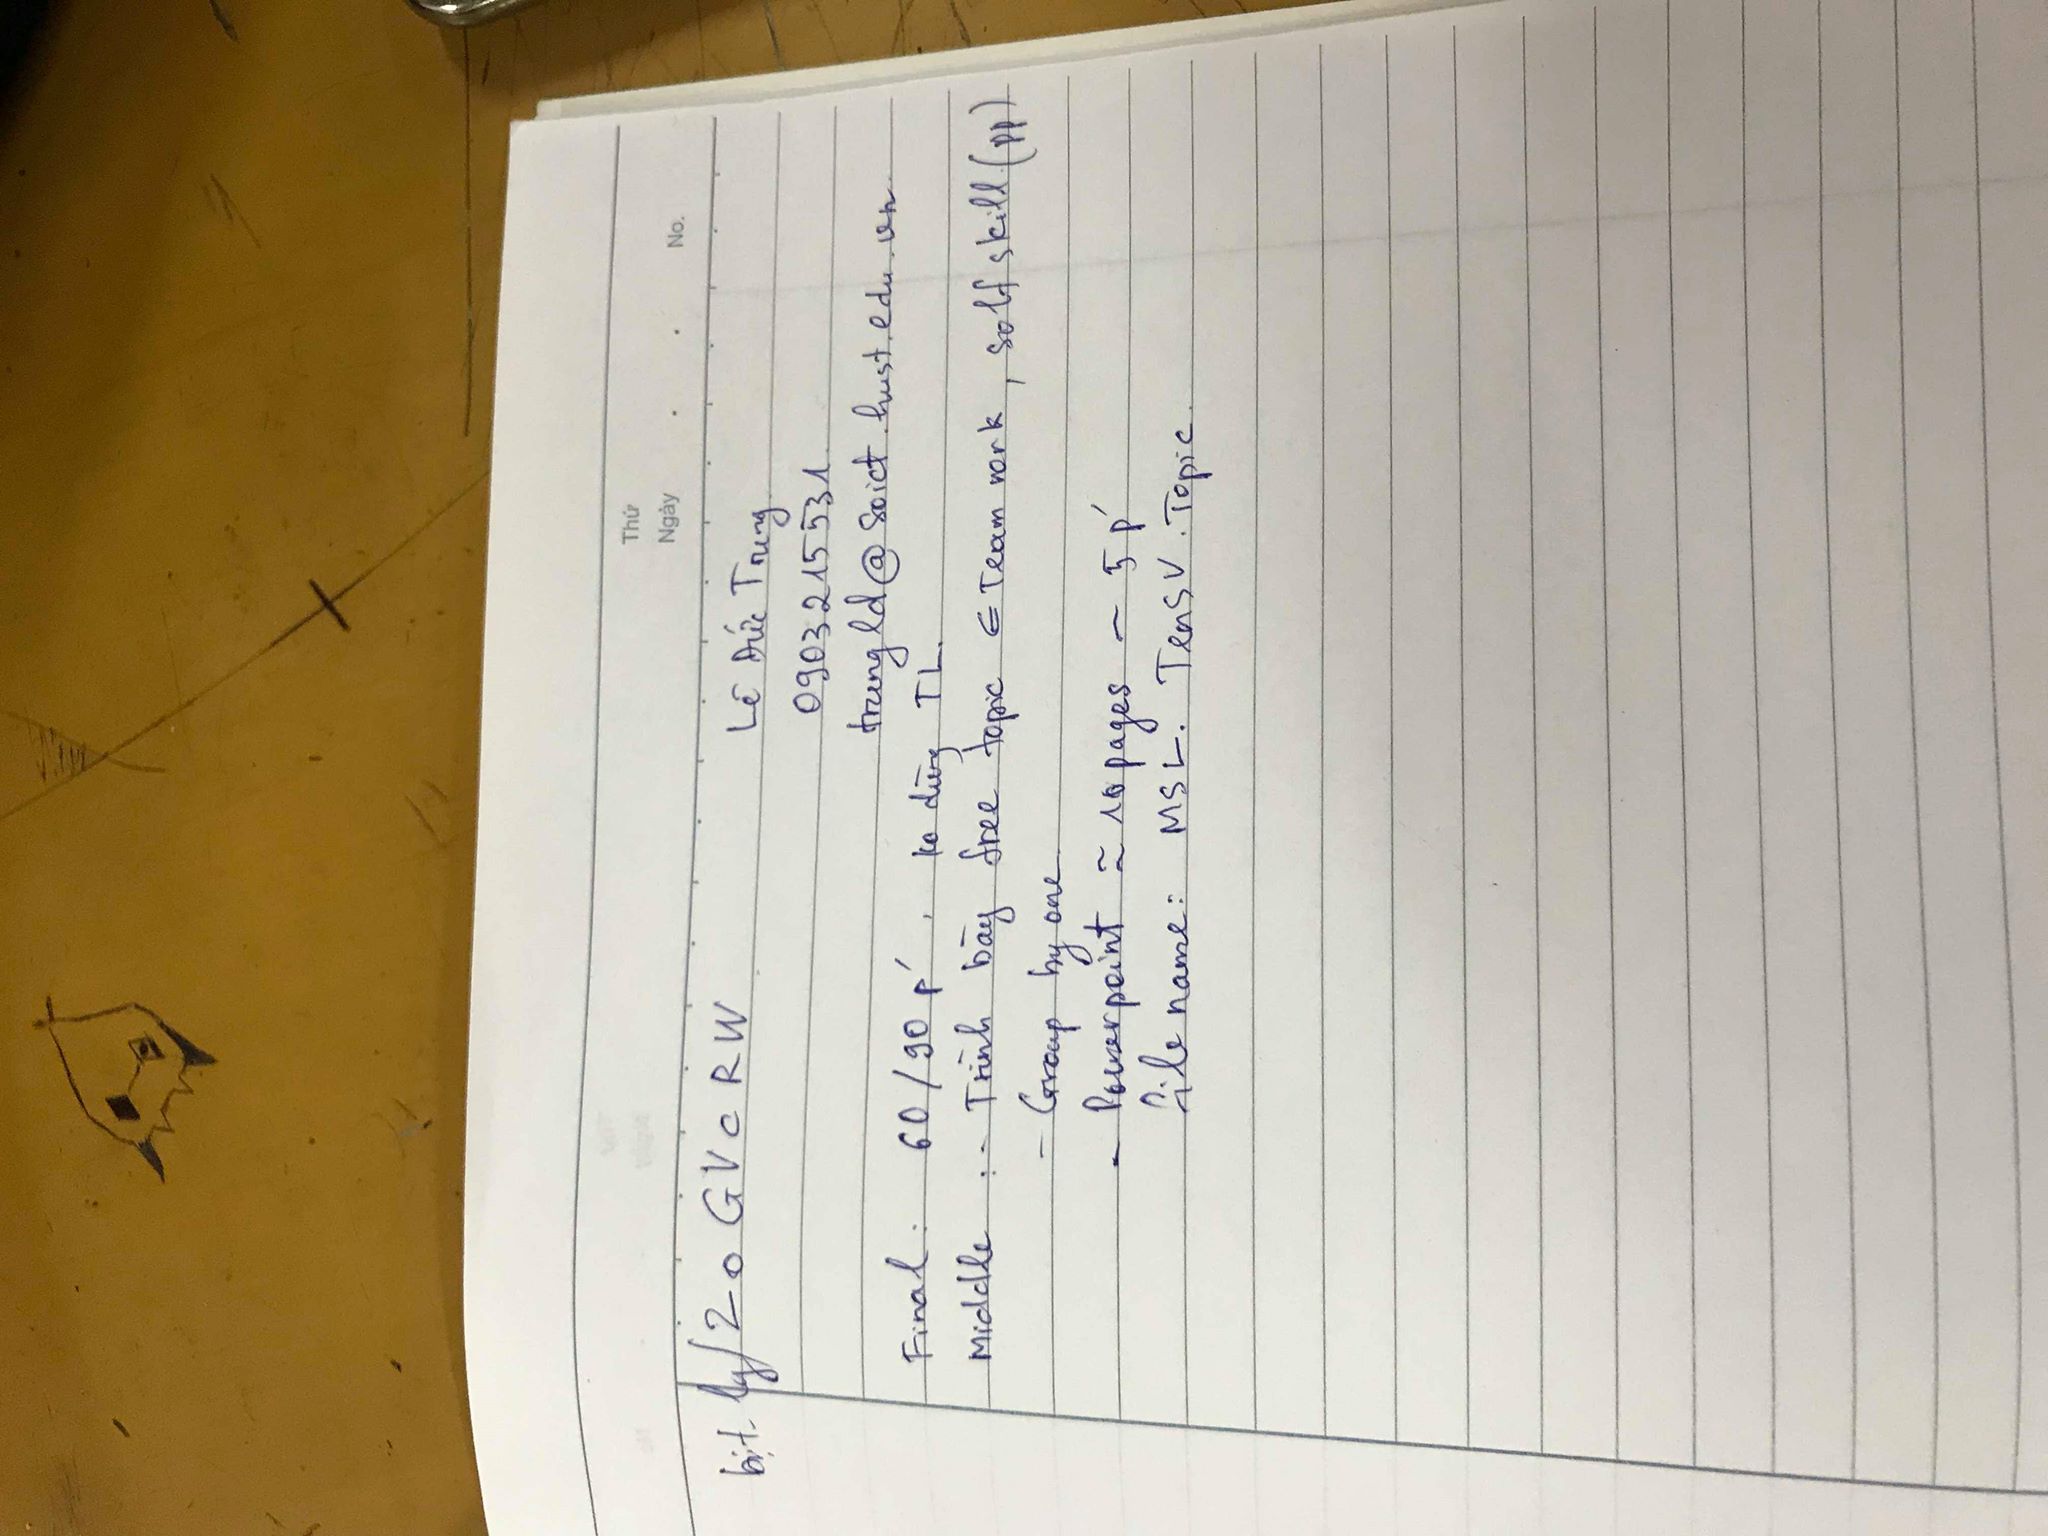 Thứ
Ngày . . No.
bit.ly/2oGVcRW
Lê Đức Trung
0903215531
trungld@soict.hust.edu.vn
Final: 60/90 p', ko dùng TL.
Middle : - Trình bày free topic ∈ Team work, solf skill (pp)
- Group by one
- Powerpoint ≈ 10 pages ~ 5 p'
file name: MSL. TenSV. Topic.